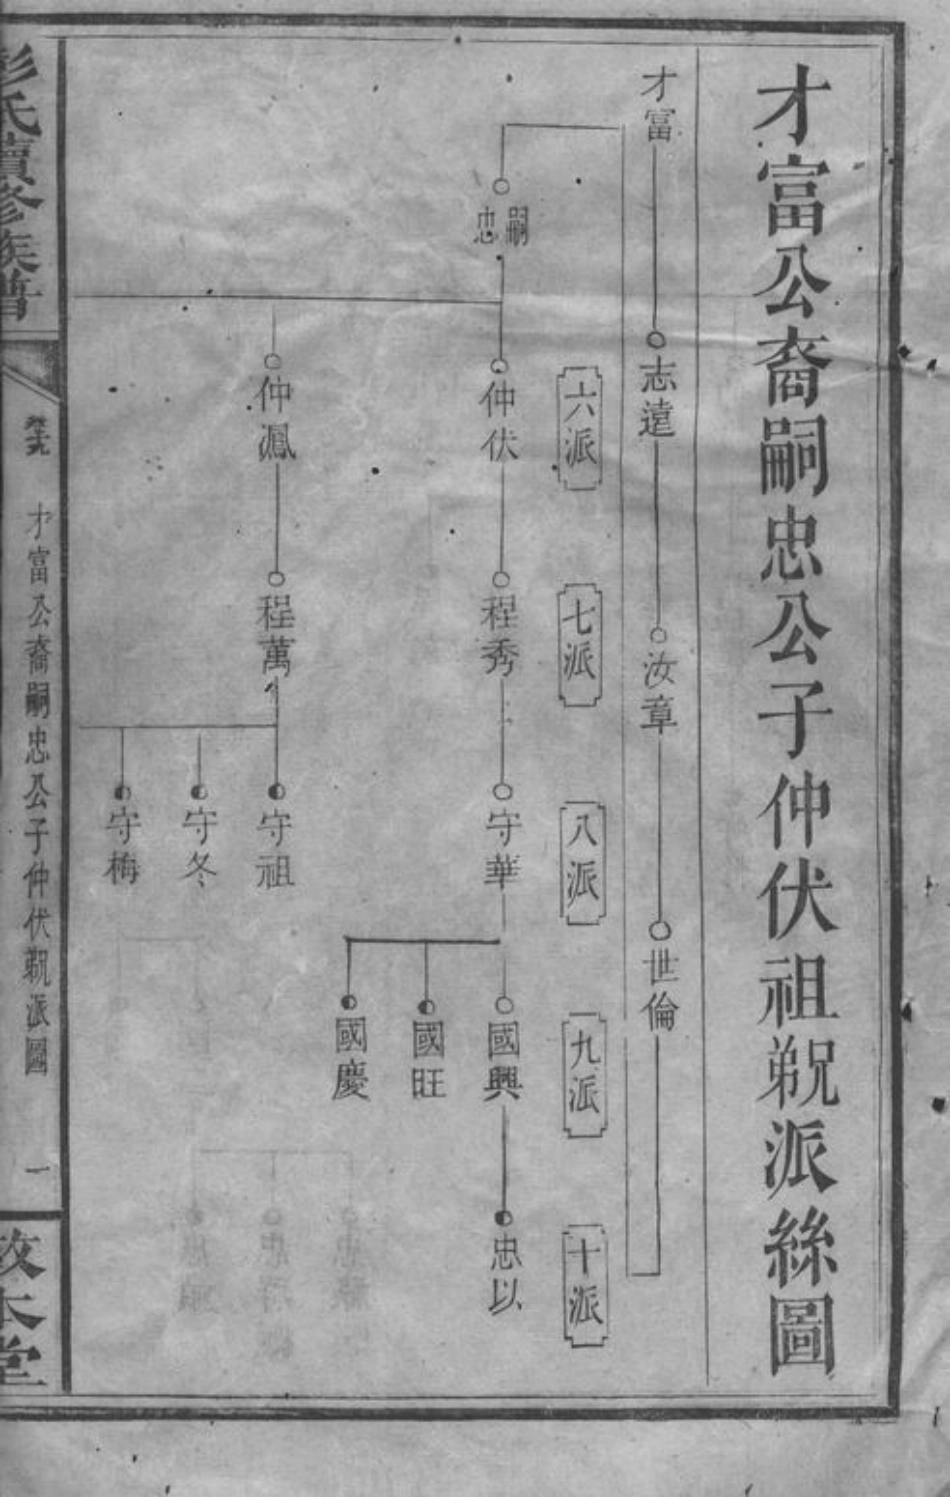 才富公裔嗣忠公子仲伏祖鹔派絲圖
才富
志遠
汝章
世倫
六派
七派
八派
九派
十派
嗣忠
仲伏
程秀
守華
國興
忠以
國旺
國慶
仲鳳
程萬
守祖
守冬
守梅
彭氏續修族譜
才富公裔嗣忠公子仲伏派圖
一
敦本堂